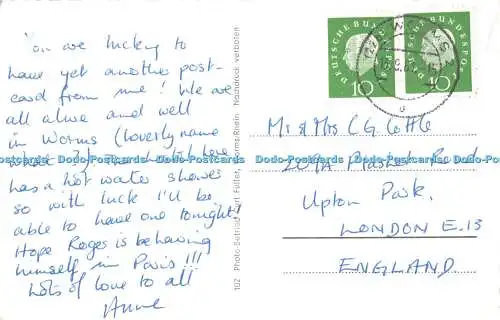 You are lucky to
have yet another post-
card from me! We are
all alive and well
in Worms (loverly name
has a hot water shower
so with luck I'll be
able to have one tonight!
Hope Roges is behaving
himself in Paris !!!
Lots of love to all
Anne
102 Photo-Betrieb Kurt Füller, Worms/Rhein Nachdruck verboten
DEUTSCHE BUNDESPOST
10
DEUTSCHE BUNDESPOST
10
WORMS
Mr & Mrs CG Cottle
201A Plashet Road
Upton Park.
LONDON E.13
ENGLAND.
Dodo-Postcards Dodo-Postcards Dodo-Postcards Dodo-Postcards Dodo-Postcards